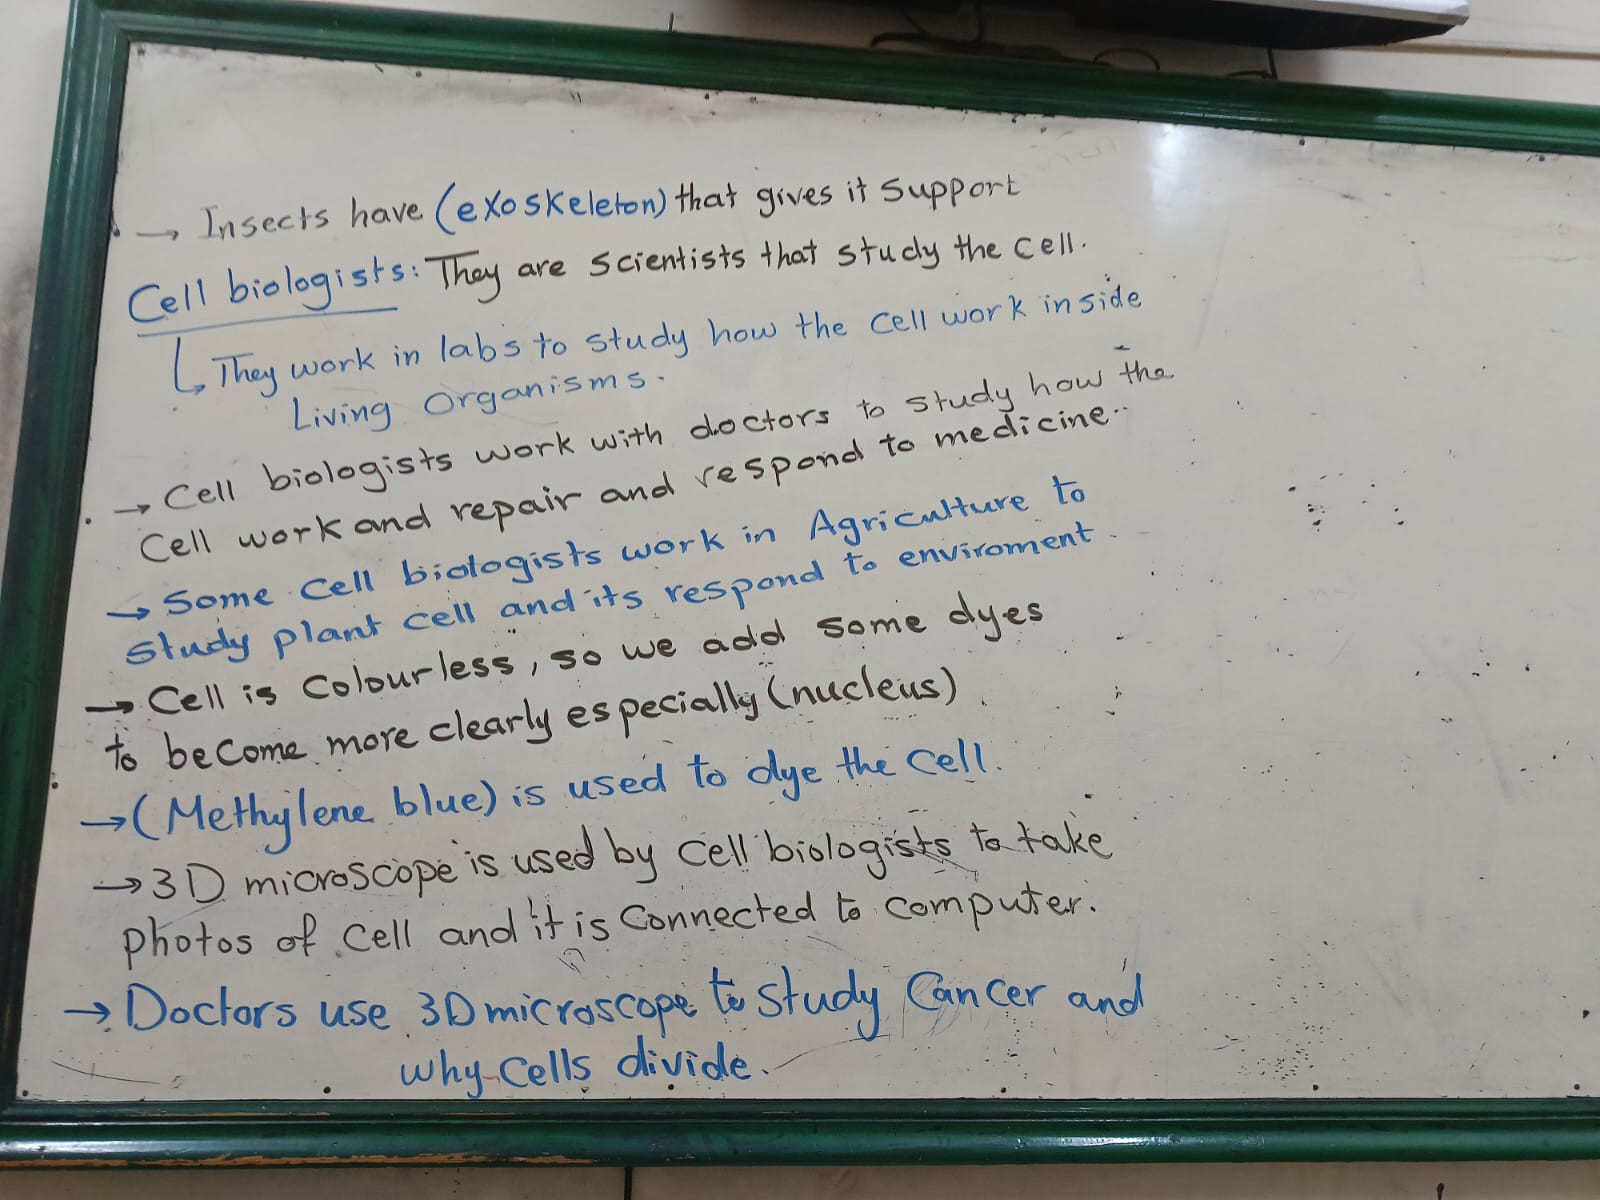 → Insects have (exoskeleton) that gives it support
Cell biologists: They are scientists that study the cell.
They work in labs to study how the cell work inside
Living organisms.
→ Cell biologists work with doctors to study how the
Cell work and repair and respond to medicine..
→ Some cell biologists work in Agriculture to
study plant cell and its respond to enviroment
→ Cell is Colourless, so we add some dyes
to become more clearly especially (nucleus)
→ (Methylene blue) is used to dye the cell.
→ 3D microscope is used by cell biologists to take
photos of cell and it is Connected to computer.
→ Doctors use 3D microscope to study Cancer and
why cells divide.